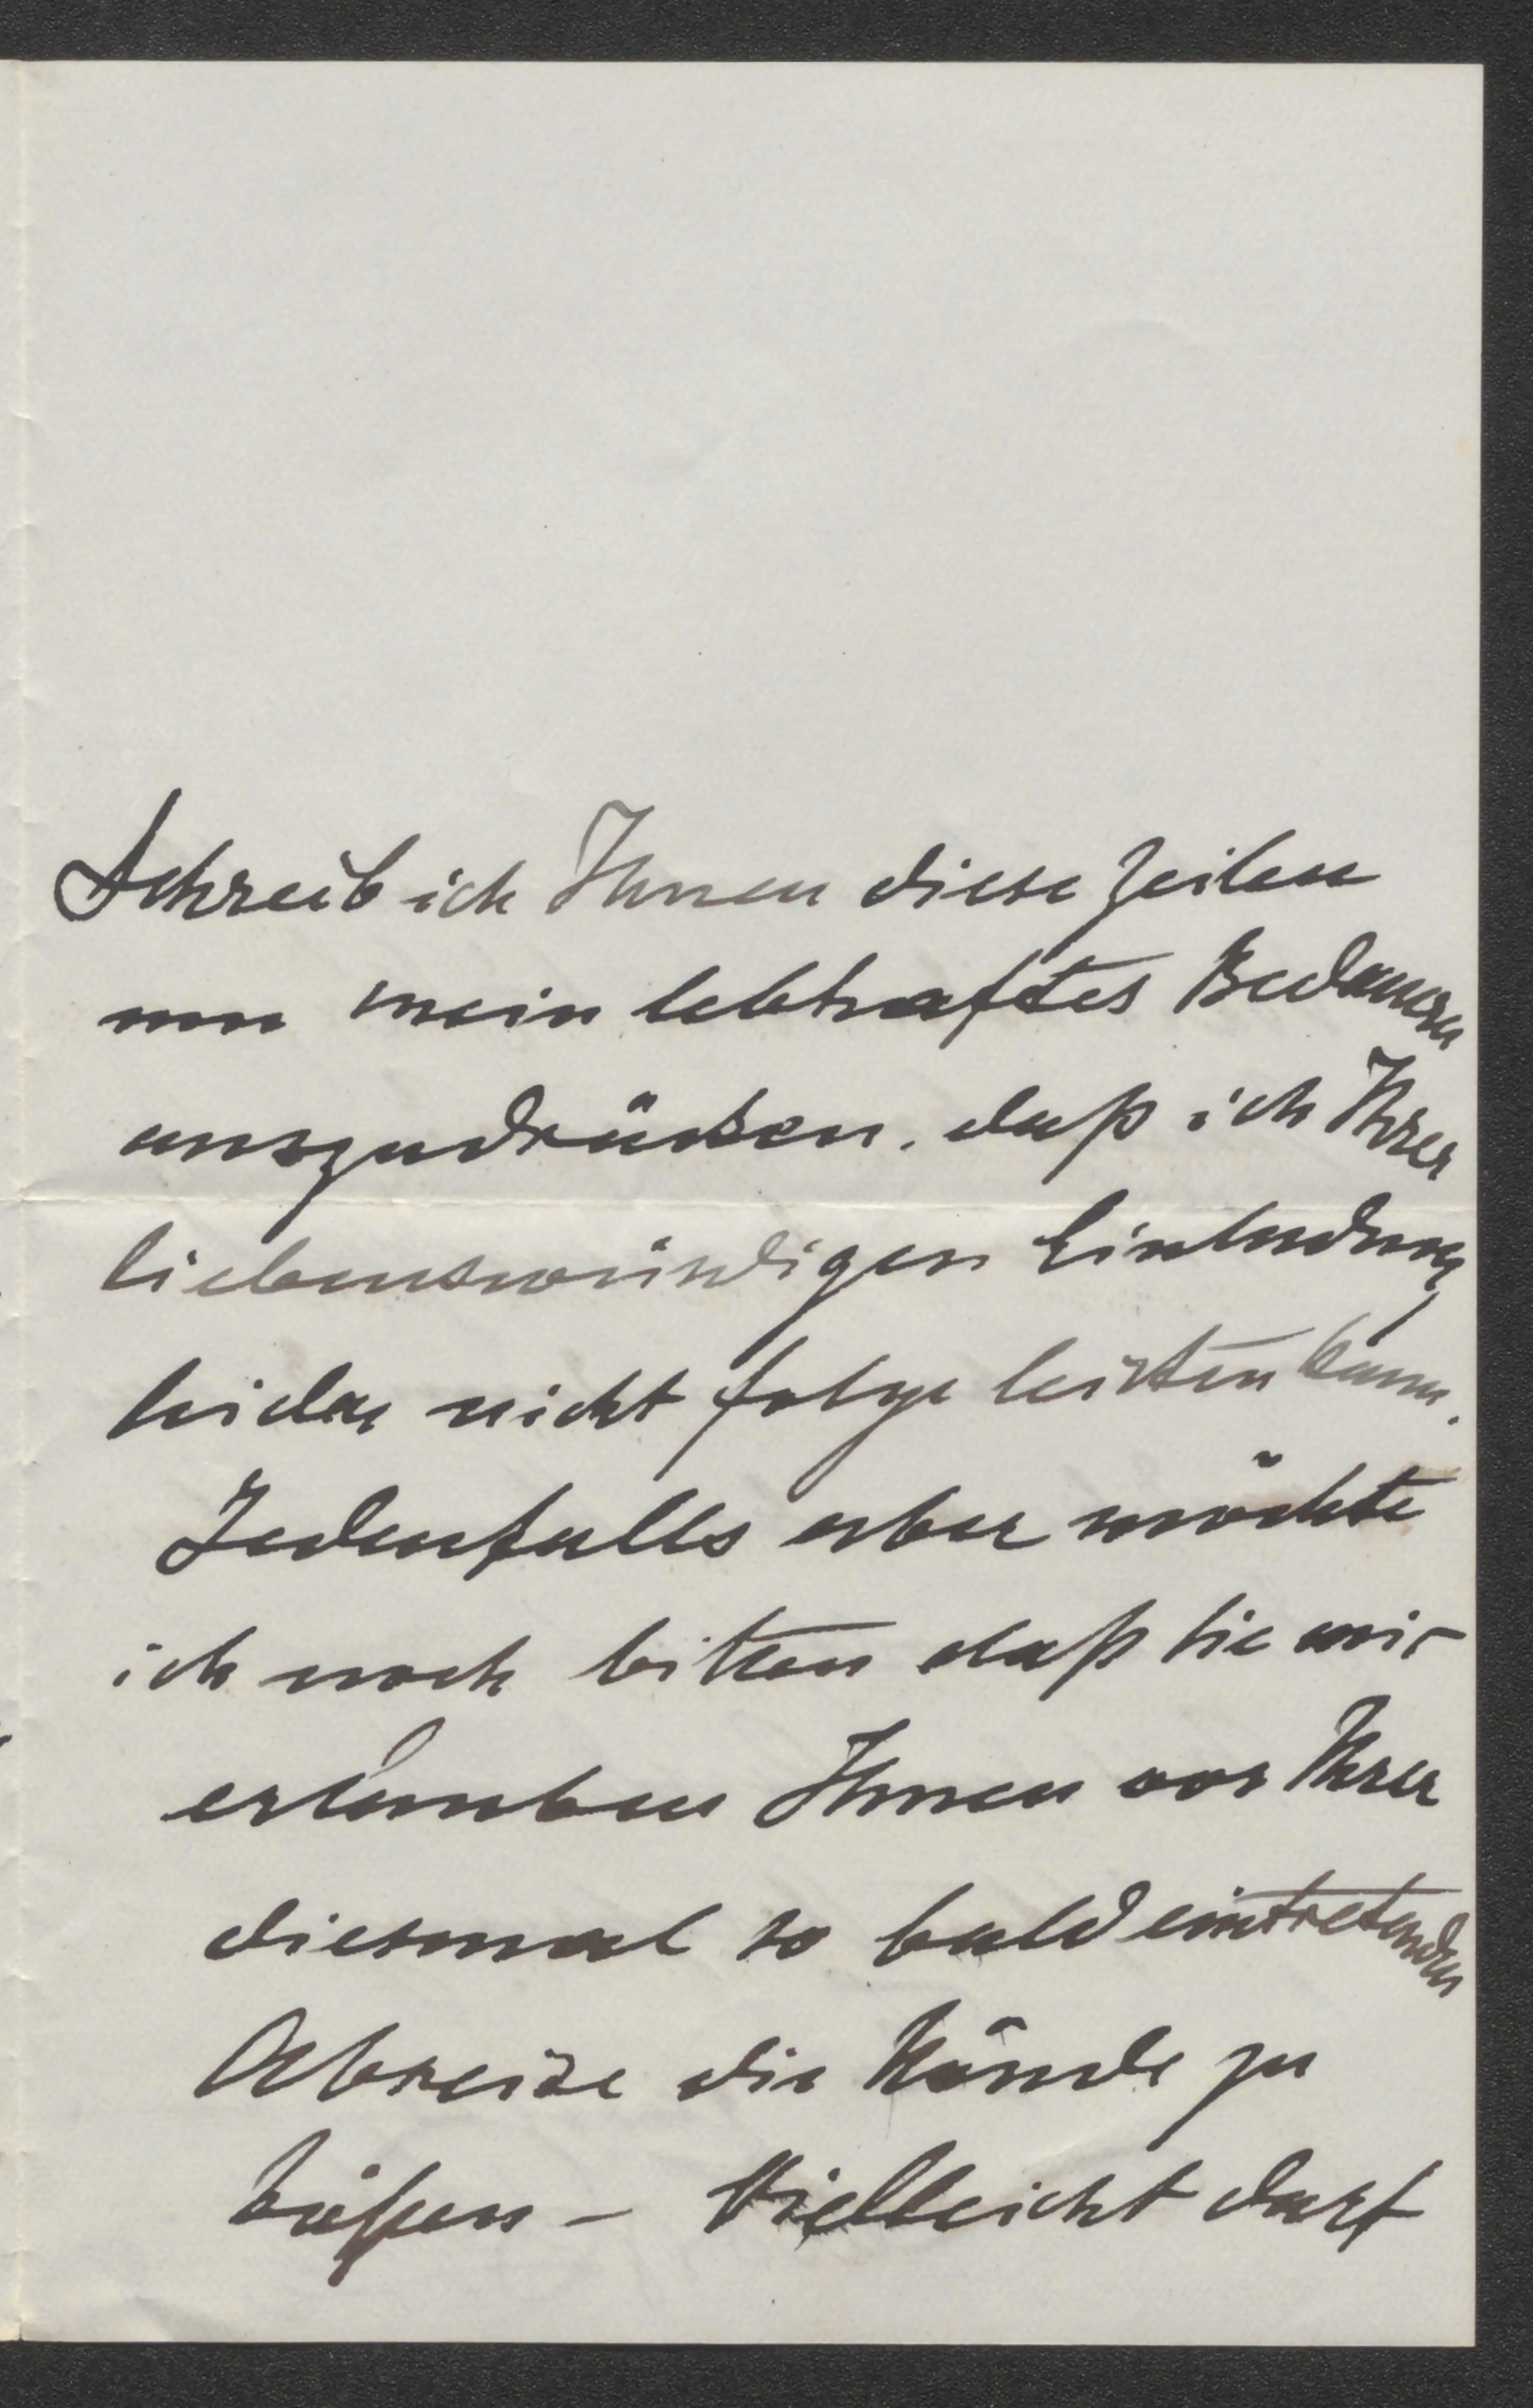 Schreib ich Ihnen diese Zeilen
um mein lebhaftes Bedauern
auszudrücken, daß ich Ihrer
liebenswürdigen Einladung
leider nicht folge leisten kann.
Jedenfalls aber möchte
ich noch bitten daß Sie mir
erlauben Ihnen vor Ihrer
diesmal so bald eintretenden
Abreise die Hände zu
küßen – Vielleicht darf